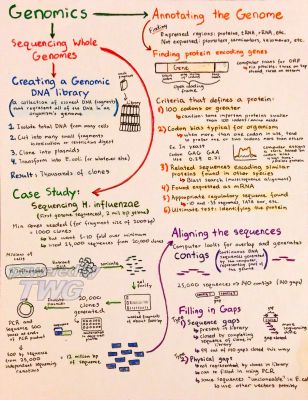 Genomics
Sequencing Whole
Genomes
Creating a Genomic
DNA library
(a collection of cloned DNA fragments
that represent all of the DNA in an
organism's genome)
1. Isolate total DNA from many cells
2. Cut into many small fragments
3. Clone into plasmids
4. Transform into E. coli (or whatever else)
Result: Thousands of clones
Case Study:
Sequencing H. influenzae
(First genome sequenced, 2 mil bp genome)
Min clones needed (for fragment size of 2000 bp)
= 1000 clones
but need 5-10 fold over minimum
so used 25,000 sequences from 20,000 clones
Millions of
cells
Extract
sonicate
purify
20,000
clones
generated
PCR and
Sequence 500
bases at ends
of PCR product
500 bp sequence from
25,000
independent sequencing
reactions
= 12 million bp of sequence
TWG
Annotating the Genome
Finding
Expressed regions: proteins, tRNA, rRNA, etc.
Not expressed: promoters, centromeres, telomeres, etc.
Finding protein encoding genes
Gene
Open reading
frame
Computer looks for ORF
Criteria that defines a protein:
1) 100 codons or greater
random has important proteins smaller
than 100 amino acids
2) Codon bias typical for organism
when more than one codon is used, tend
to prefer one or two codons over others
Ex. In yeast
GAG GAA
use 0.29 0.71
3) Related sequences encoding similar
proteins found in other species
Blast search (matching alignment)
4) Found expressed as mRNA
5) Appropriate regulatory sequence found
6) Ultimate test: identifying the protein
Aligning the sequences
Computer looks for overlap and generates
contigs
25,000 sequences → 140 contigs (140 gaps)
Filling in Gaps
1) Sequence gaps
present in library
closed by completing
sequence of clone in
library
99 out of 140 gaps closed this way
2) Physical gaps
not represented by clones in library
can be closed in using PCR
some sequence "unclonable" in E. coli
use other vectors possibly